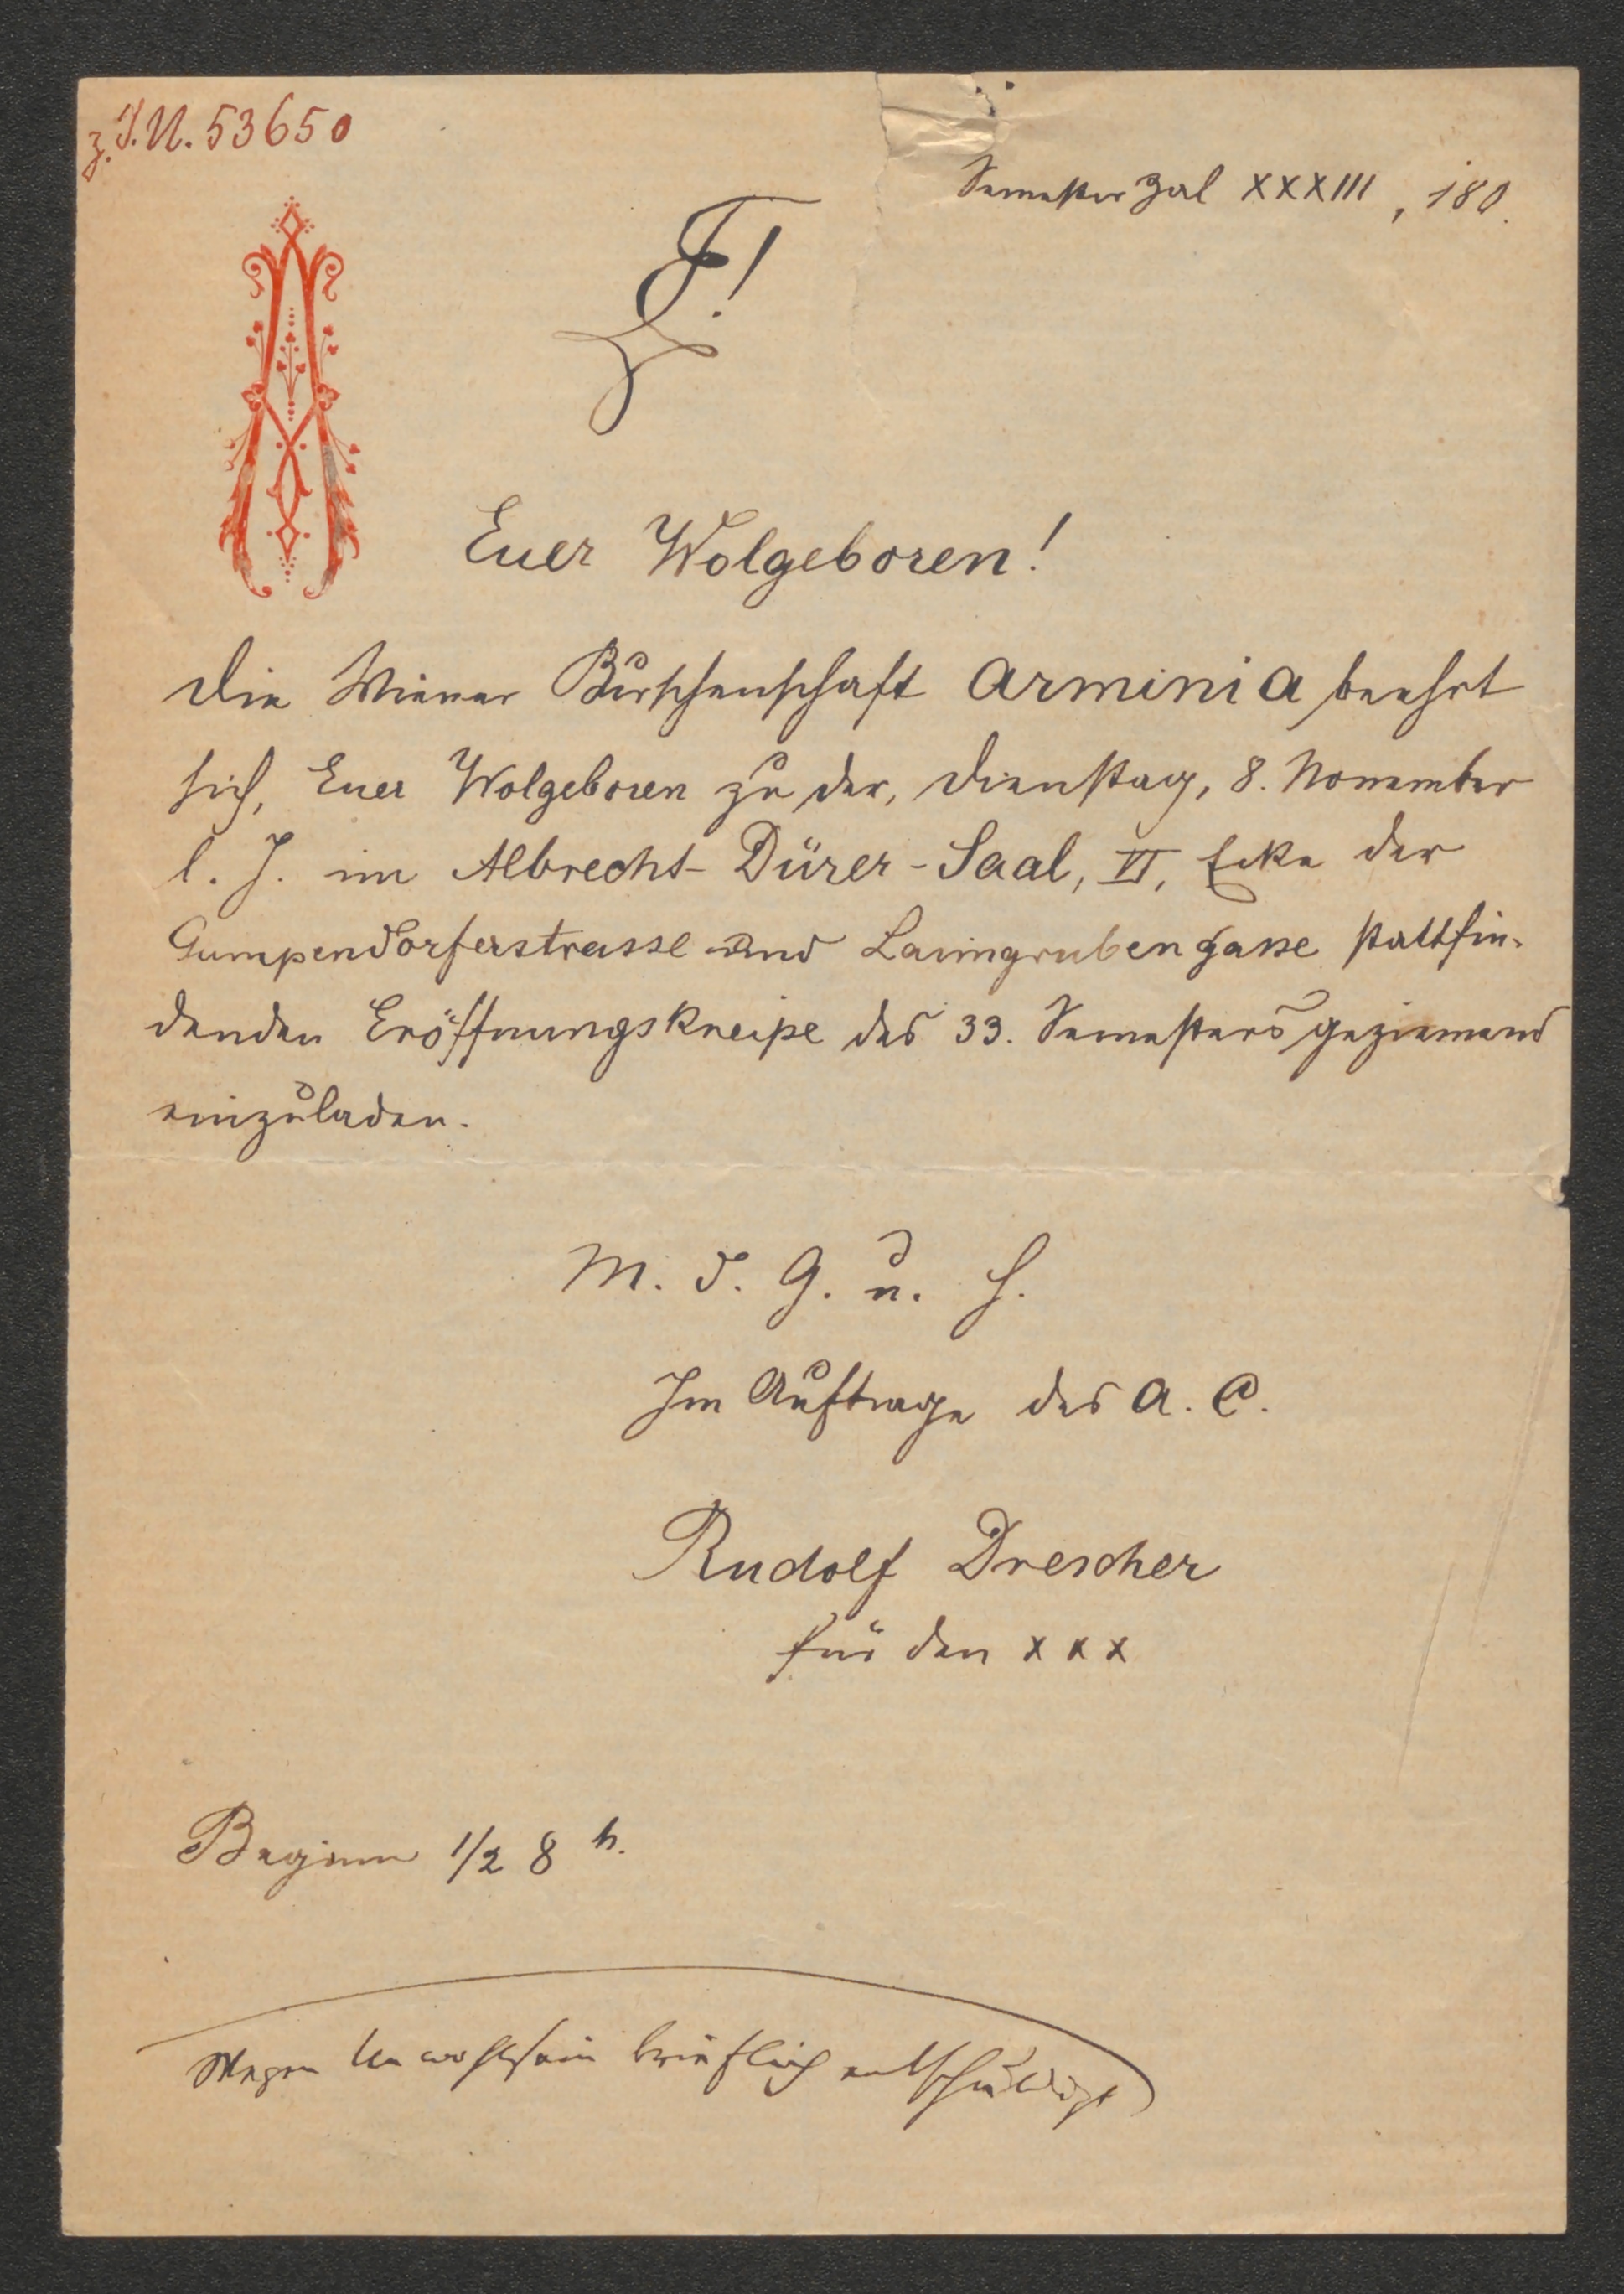 z. I. N. 53650
Semesterzal XXXIII, 180.
F!
Euer Wolgeboren!
Die Wiener Burschenschaft Arminia beehrt
sich, Euer Wolgeboren zu der, Dienstag, 8. November
l. J. im Albrecht-Dürer-Saal, VI, Ecke der
Gumpendorferstrasse und Laimgrubengasse stattfin-
denden Eröffnungskneipe des 33. Semesters geziemend
einzuladen.
M. d. G. u. H.
Im Auftrage des A. C.
Rudolf Drescher
für den x x x
Beginn 1/2 8 h.
Wegen Unwohlsein brieflich entschuldigt